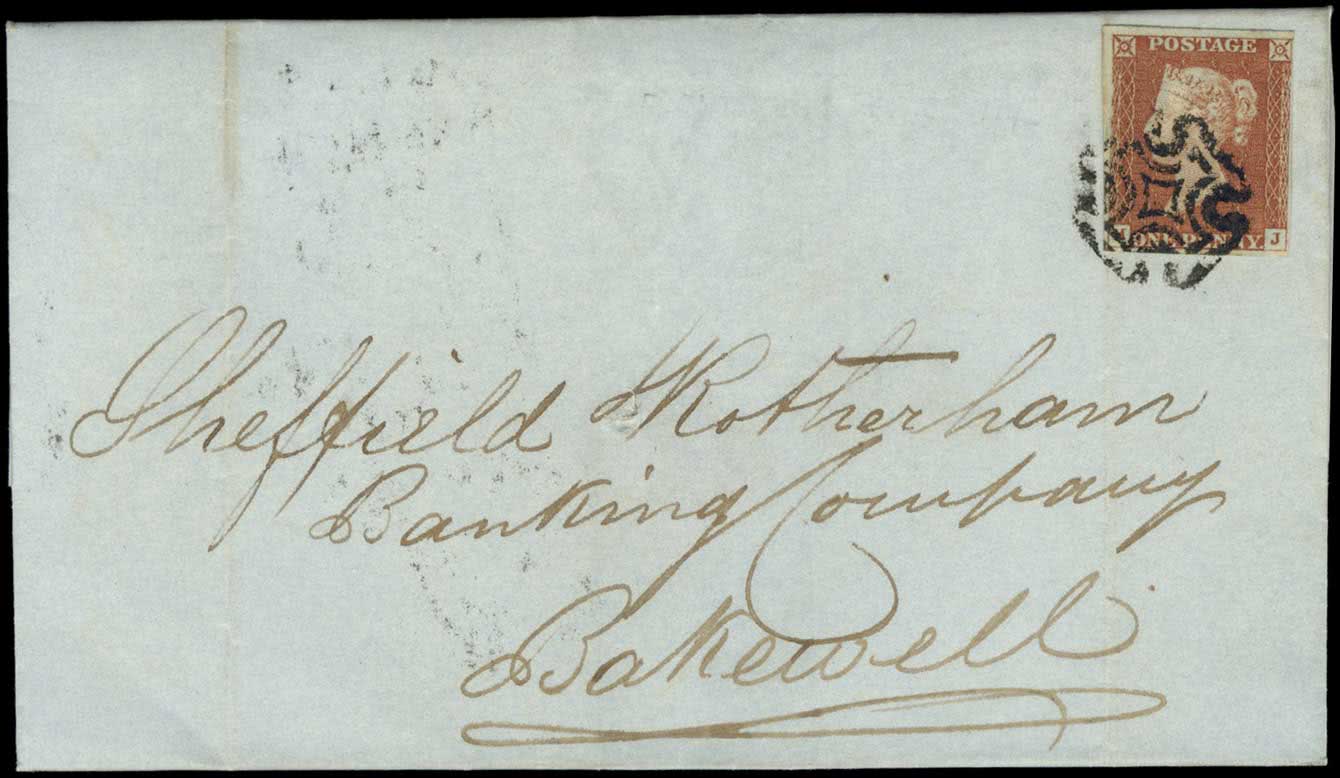 POSTAGE
ONE PENNY
J
Sheffield & Rotherham
Banking Company
Bakewell